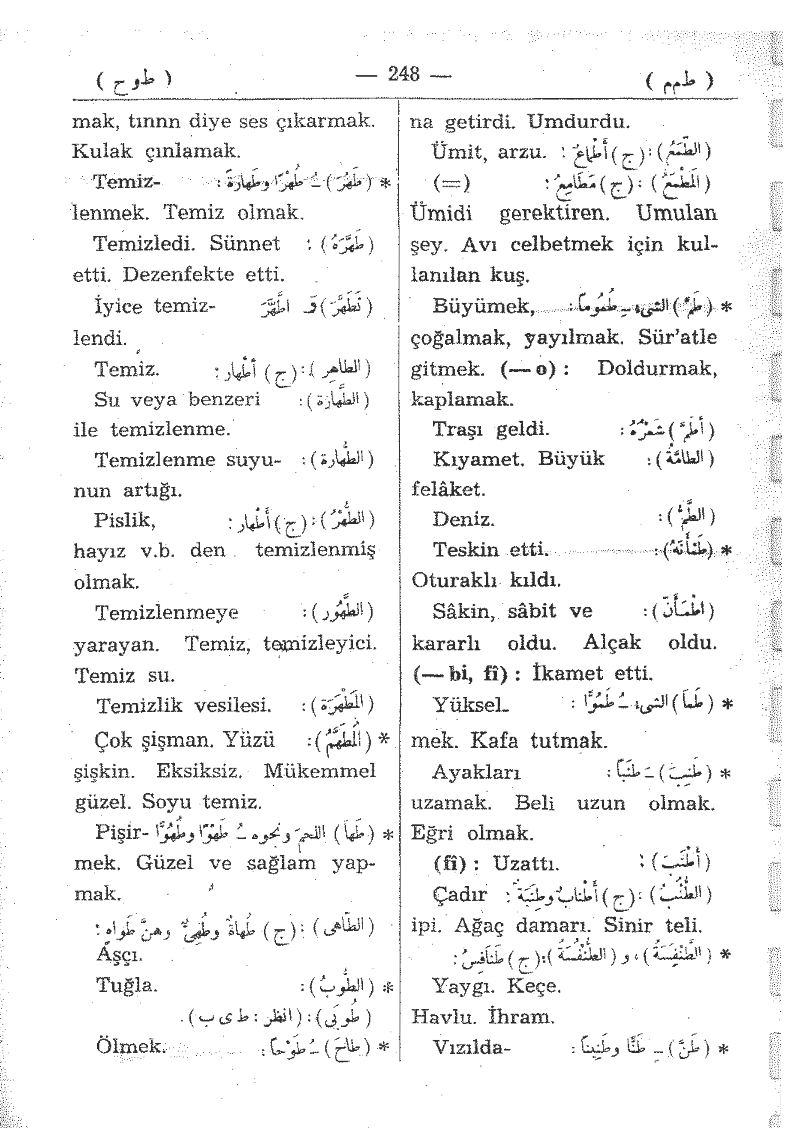 ( طمم ) — 248 — ( طوح )
na getirdi. Umdurdu.
(الطَّمَعُ):(ج) أَطْمَاعٌ : Ümit, arzu.
(المَطْمَعُ) : (ج) مَطَامِعُ : (=)
Ümidi gerektiren. Umulan
şey. Avı celbetmek için kul-
lanılan kuş.
* (طَمَّ) الشىءُ ـِ طُمُوماً : Büyümek,
çoğalmak, yayılmak. Sür'atle
gitmek. (— o) : Doldurmak,
kaplamak.
(أَطَمَّ) شَعْرُهُ : Traşı geldi.
(الطامَّة) : Kıyamet. Büyük
felâket.
(الطَّمُّ) : Deniz.
* (طَمْأَنَهُ) : Teskin etti.
Oturaklı kıldı.
(اطْمَأَنَّ) : Sâkin, sâbit ve
kararlı oldu. Alçak oldu.
(— bi, fî) : İkamet etti.
* (طَمَا) الشىءُ ـُ طُمُوًّا : Yüksel-
mek. Kafa tutmak.
* (طَنِبَ) ـَ طَنَباً : Ayakları
uzamak. Beli uzun olmak.
Eğri olmak.
(أَطْنَبَ) : (fî) : Uzattı.
(الطُّنُبُ) : (ج) أَطْنَابٌ وطِنَبَةٌ : Çadır
ipi. Ağaç damarı. Sinir teli.
* (الطَّنْفِسَةُ) ، و (الطُّنْفُسَةُ) :(ج) طَنَافِسُ :
Yaygı. Keçe.
Havlu. İhram.
* (طَنَّ) ـِ طَنًّا وطَنِيناً : Vızılda-
mak, tınnn diye ses çıkarmak.
Kulak çınlamak.
* (طَهُرَ) ـُ طُهْرًا وطَهَارَةً : Temiz-
lenmek. Temiz olmak.
(طَهَّرَهُ) : Temizledi. Sünnet
etti. Dezenfekte etti.
(تَطَهَّرَ) فَـ اطَّهَّرَ İyice temiz-
lendi.
(الطاهر) :(ج) أطْهار : Temiz.
(الطَّهَارَة) : Su veya benzeri
ile temizlenme.
(الطُّهَارة) : Temizlenme suyu-
nun artığı.
(الطُّهْرُ) :(ج) أَطْهار : Pislik,
hayız v.b. den temizlenmiş
olmak.
(الطَّهُور) : Temizlenmeye
yarayan. Temiz, temizleyici.
Temiz su.
(المَطْهَرَة) : Temizlik vesilesi.
* (المُطَهَّمُ) : Çok şişman. Yüzü
şişkin. Eksiksiz. Mükemmel
güzel. Soyu temiz.
* (طَهَا) اللحمَ ونحوه ـُ طَهْوًا وطُهُوًّا Pişir-
mek. Güzel ve sağlam yap-
mak.
(الطَّاهى) : (ج) طُهاةٌ وطُهِىٌّ وهنَّ طَواهٍ :
Aşçı.
* (الطُّوبُ) : Tuğla.
(طُوبَى) : (انظر : ط ى ب) .
* (طَاحَ) ـُ طَوْحاً : Ölmek.